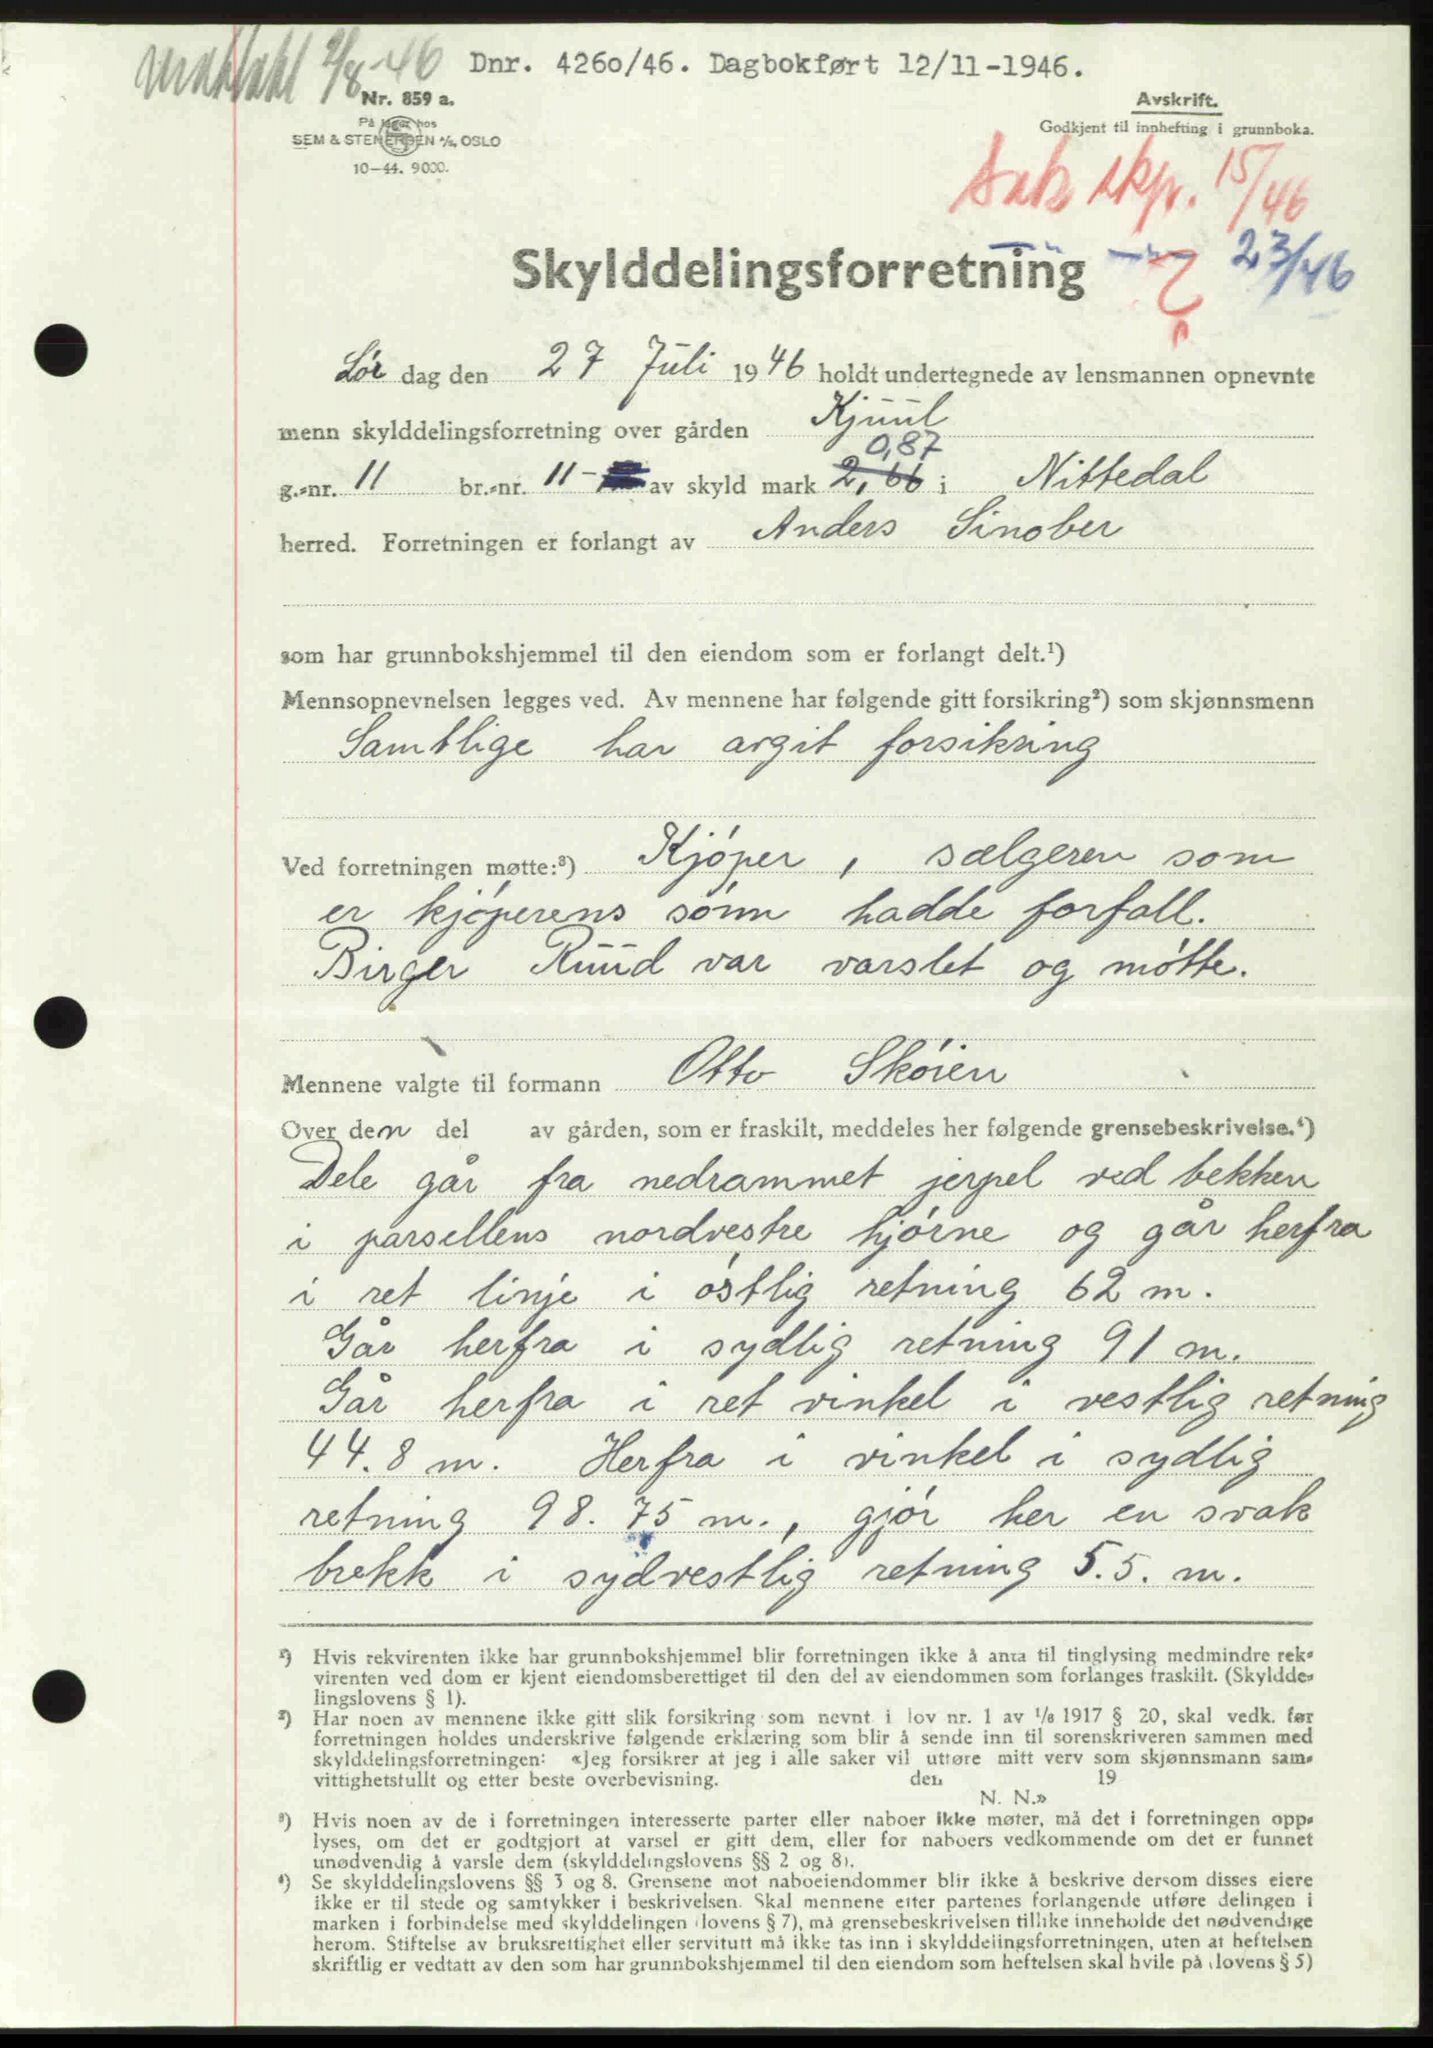 Dnr. 4260/46. Dagbokført 12/11-1946.
2/8-46
Nr. 859 a.
På lager hos
SEM & STENERSEN A/S, OSLO
10-44. 9000.
Avskrift.
Godkjent til innhefting i grunnboka.
skp. 15/46
23/46
Skylddelingsforretning
Lør dag den 27 Juli 1946 holdt undertegnede av lensmannen opnevnte
menn skylddelingsforretning over gården Kjuul
0,87
g.-nr. 11 br.-nr. 11 av skyld mark 2,66 i Nittedal
herred. Forretningen er forlangt av Anders Sinober
som har grunnbokshjemmel til den eiendom som er forlangt delt.¹)
Mennsopnevnelsen legges ved. Av mennene har følgende gitt forsikring²) som skjønnsmenn
Samtlige har avgit forsikring
Ved forretningen møtte:³) Kjøper, sælgeren som
er kjøperens sønn hadde forfall.
Birger Ruud var varslet og møtte.
Mennene valgte til formann Otto Skøien
Over den del av gården, som er fraskilt, meddeles her følgende grensebeskrivelse.⁴)
Dele går fra nedrammet jerpel ved bekken
i parsellens nordvestre hjørne og går herfra
i ret linje i østlig retning 62 m.
Går herfra i sydlig retning 91 m.
Går herfra i ret vinkel i vestlig retning
44.8 m. Herfra i vinkel i sydlig
retning 98.75 m., gjør her en svak
brekk i sydvestlig retning 5.5. m.
¹) Hvis rekvirenten ikke har grunnbokshjemmel blir forretningen ikke å anta til tinglysing medmindre rek-
virenten ved dom er kjent eiendomsberettiget til den del av eiendommen som forlanges fraskilt. (Skyldde-
lingslovens § 1).
²) Har noen av mennene ikke gitt slik forsikring som nevnt i lov nr. 1 av 1/8 1917 § 20, skal vedk. før
forretningen holdes underskrive følgende erklæring som blir å sende inn til sorenskriveren sammen med
skylddelingsforretningen: «Jeg forsikrer at jeg i alle saker vil utføre mitt verv som skjønnsmann sam-
vittighetsfullt og etter beste overbevisning. den 19
N. N.»
³) Hvis noen av de i forretningen interesserte parter eller naboer ikke møter, må det i forretningen opp-
lyses, om det er godtgjort at varsel er gitt dem, eller for naboers vedkommende om det er funnet
unødvendig å varsle dem (skylddelingslovens §§ 2 og 8).
⁴) Se skylddelingslovens §§ 3 og 8. Grensene mot naboeiendommer blir ikke å beskrive dersom disses eiere
ikke er til stede og samtykker i beskrivelsen. Skal mennene etter partenes forlangende utføre delingen i
marken i forbindelse med skylddelingen (lovens § 7), må grensebeskrivelsen tillike inneholde det nødvendige
herom. Stiftelse av bruksrettighet eller servitutt må ikke tas inn i skylddelingsforretningen, uten at heftelsen
skriftlig er vedtatt av den som har grunnbokshjemmel til den eiendom som heftelsen skal hvile på (lovens § 5)